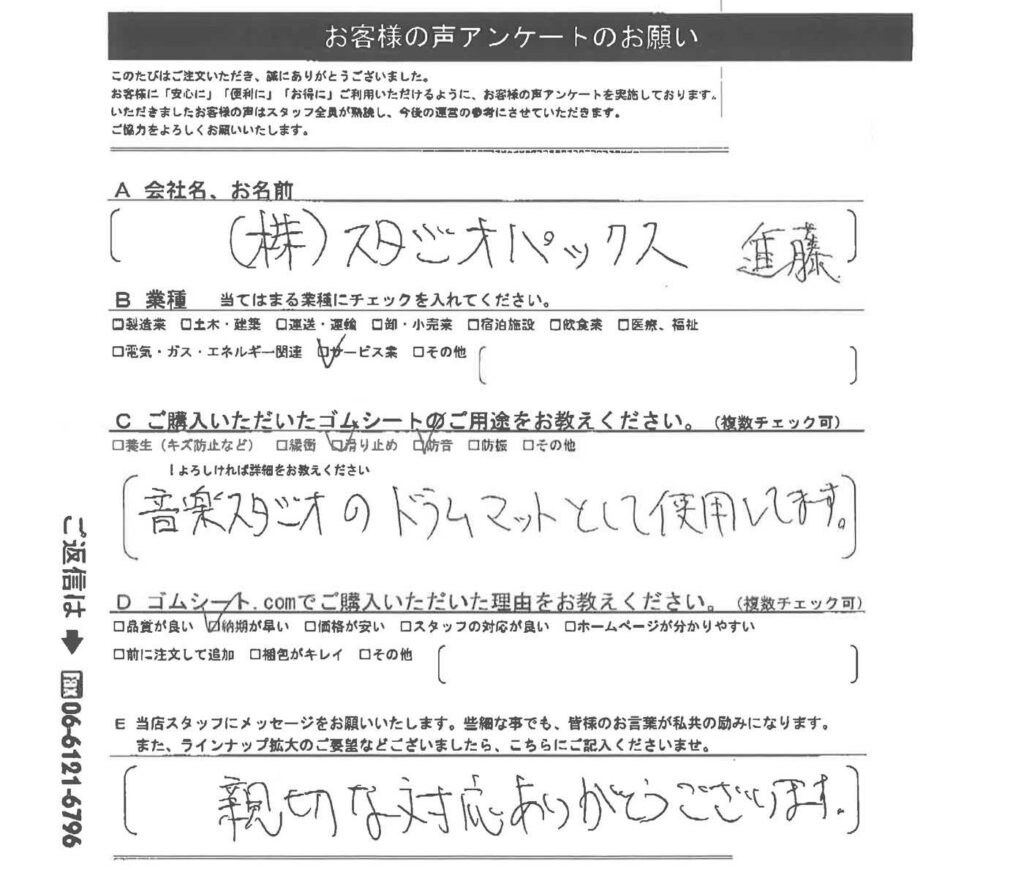 お客様の声アンケートのお願い
このたびはご注文いただき、誠にありがとうございました。
お客様に「安心に」「便利に」「お得に」ご利用いただけるように、お客様の声アンケートを実施しております。
いただきましたお客様の声はスタッフ全員が熟読し、今後の運営の参考にさせていただきます。
ご協力をよろしくお願いいたします。
A 会社名、お名前
(株)スタジオパックス 進藤
B 業種 当てはまる業種にチェックを入れてください。
□製造業 □土木・建築 □運送・運輸 □卸・小売業 □宿泊施設 □飲食業 □医療、福祉
□電気・ガス・エネルギー関連 ☑サービス業 □その他
C ご購入いただいたゴムシートのご用途をお教えください。(複数チェック可)
□養生(キズ防止など) □緩衝 ☑滑り止め ☑防音 □防振 □その他
↓よろしければ詳細をお教えください
音楽スタジオのドラムマットとして使用してます。
D ゴムシート.comでご購入いただいた理由をお教えください。(複数チェック可)
□品質が良い ☑納期が早い □価格が安い □スタッフの対応が良い □ホームページが分かりやすい
□前に注文して追加 □梱包がキレイ □その他
E 当店スタッフにメッセージをお願いいたします。些細な事でも、皆様のお言葉が私共の励みになります。
また、ラインナップ拡大のご要望などございましたら、こちらにご記入くださいませ。
親切な対応ありがとうございます。
ご返信は➡FAX06-6121-6796